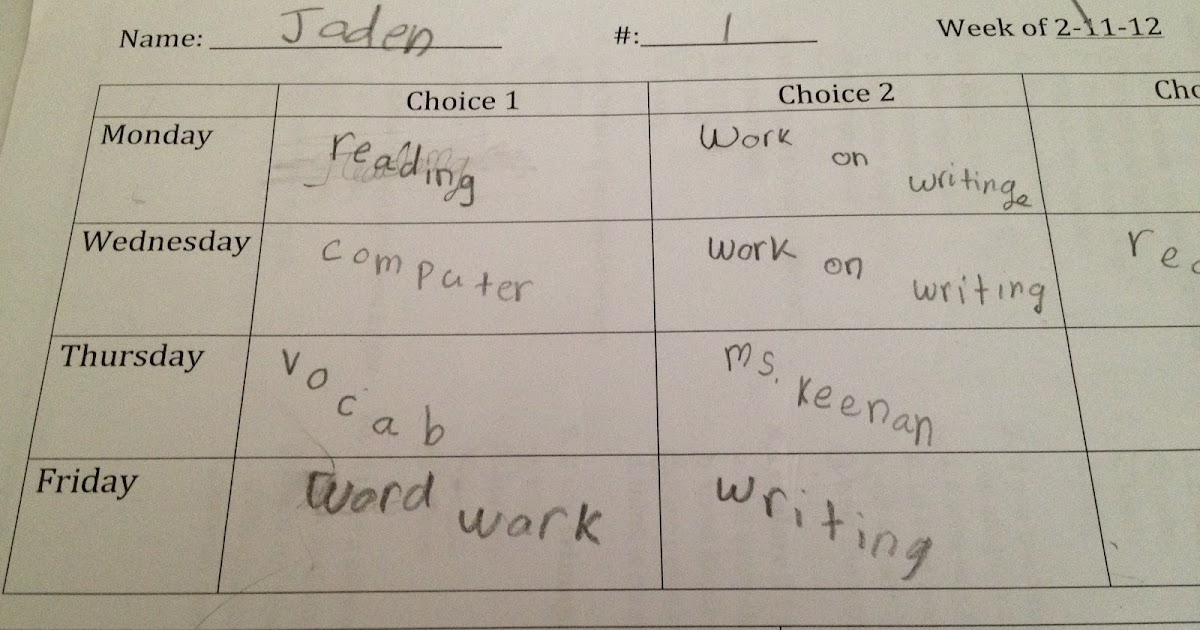 Name: Jaden #: 1 Week of 2-11-12
Choice 1 Choice 2
Monday reading work on writinge
Wednesday computer work on writing
Thursday vocab ms. Keenan
Friday word work writing